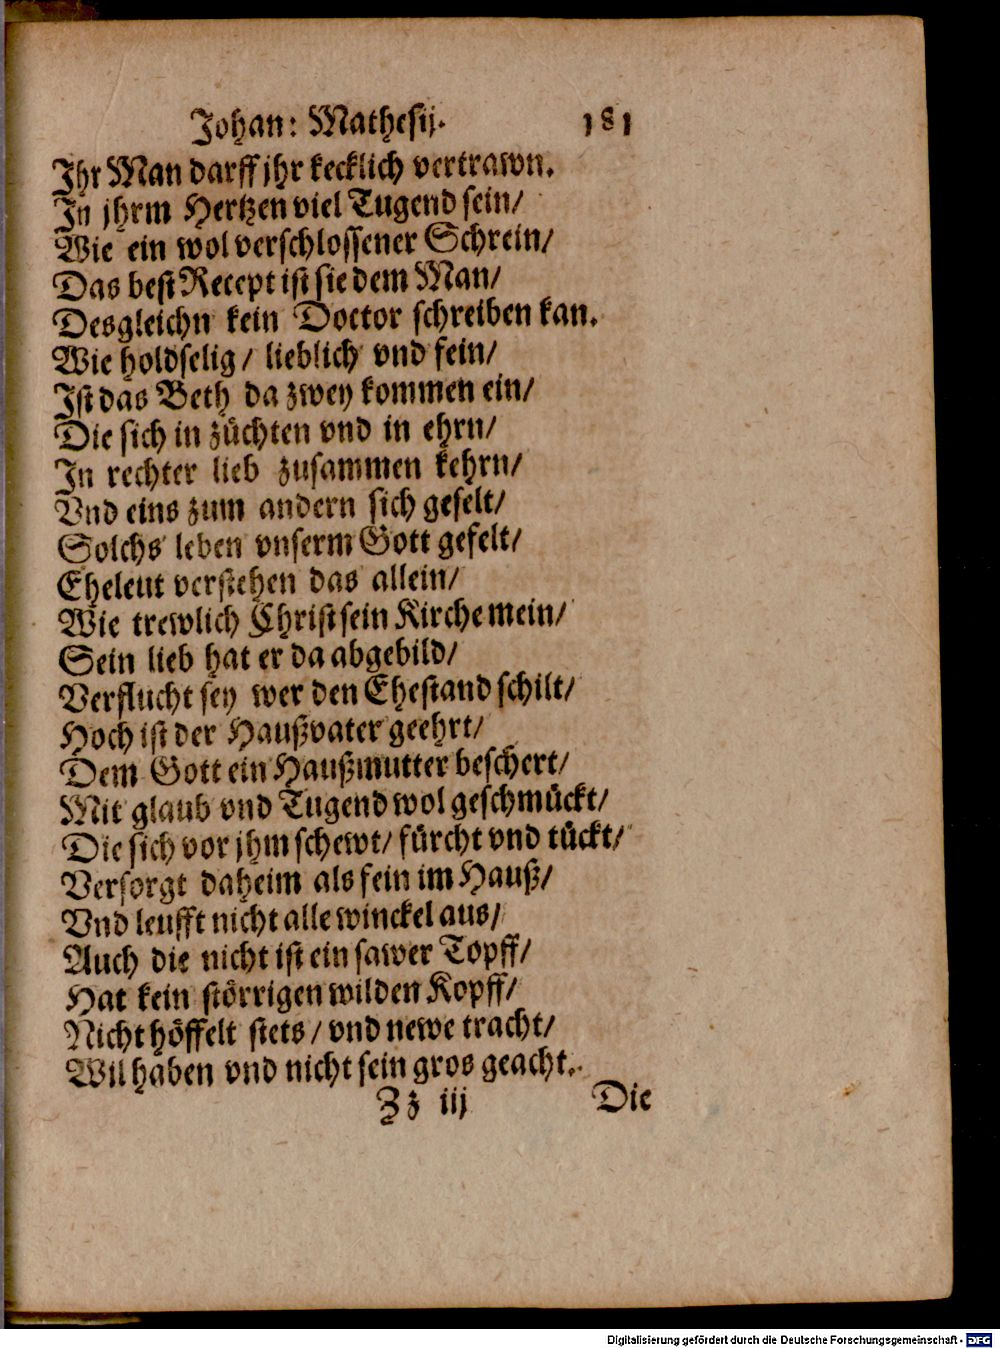 Johan: Mathesij. 181
Ihr Man darff jhr kecklich vertrawn.
In jhrm Hertzen viel Tugend sein/
Wie ein wol verschlossener Schrein/
Das best Recept ist sie dem Man/
Desgleichn kein Doctor schreiben kan.
Wie holdselig/ lieblich vnd fein/
Ist das Beth da zwey kommen ein/
Die sich in züchten vnd in ehrn/
In rechter lieb zusammen kehrn/
Vnd eins zum andern sich geselt/
Solchs leben vnserm Gott gefelt/
Eheleut verstehen das allein/
Wie trewlich Christ sein Kirche mein/
Sein lieb hat er da abgebild/
Verflucht sey wer den Ehestand schilt/
Hoch ist der Haußvater geehrt/
Dem Gott ein Haußmutter beschert/
Mit glaub vnd Tugend wol geschmückt/
Die sich vor jhm schewt/ fürcht vnd tückt/
Versorgt daheim als fein im Hauß/
Vnd leufft nicht alle winckel aus/
Auch die nicht ist ein sawer Topff/
Hat kein störrigen wilden Kopff/
Nicht höffelt stets/ vnd newe tracht/
Wil haben vnd nicht sein gros geacht.
Zz iij Die
Digitalisierung gefördert durch die Deutsche Forschungsgemeinschaft - DFG